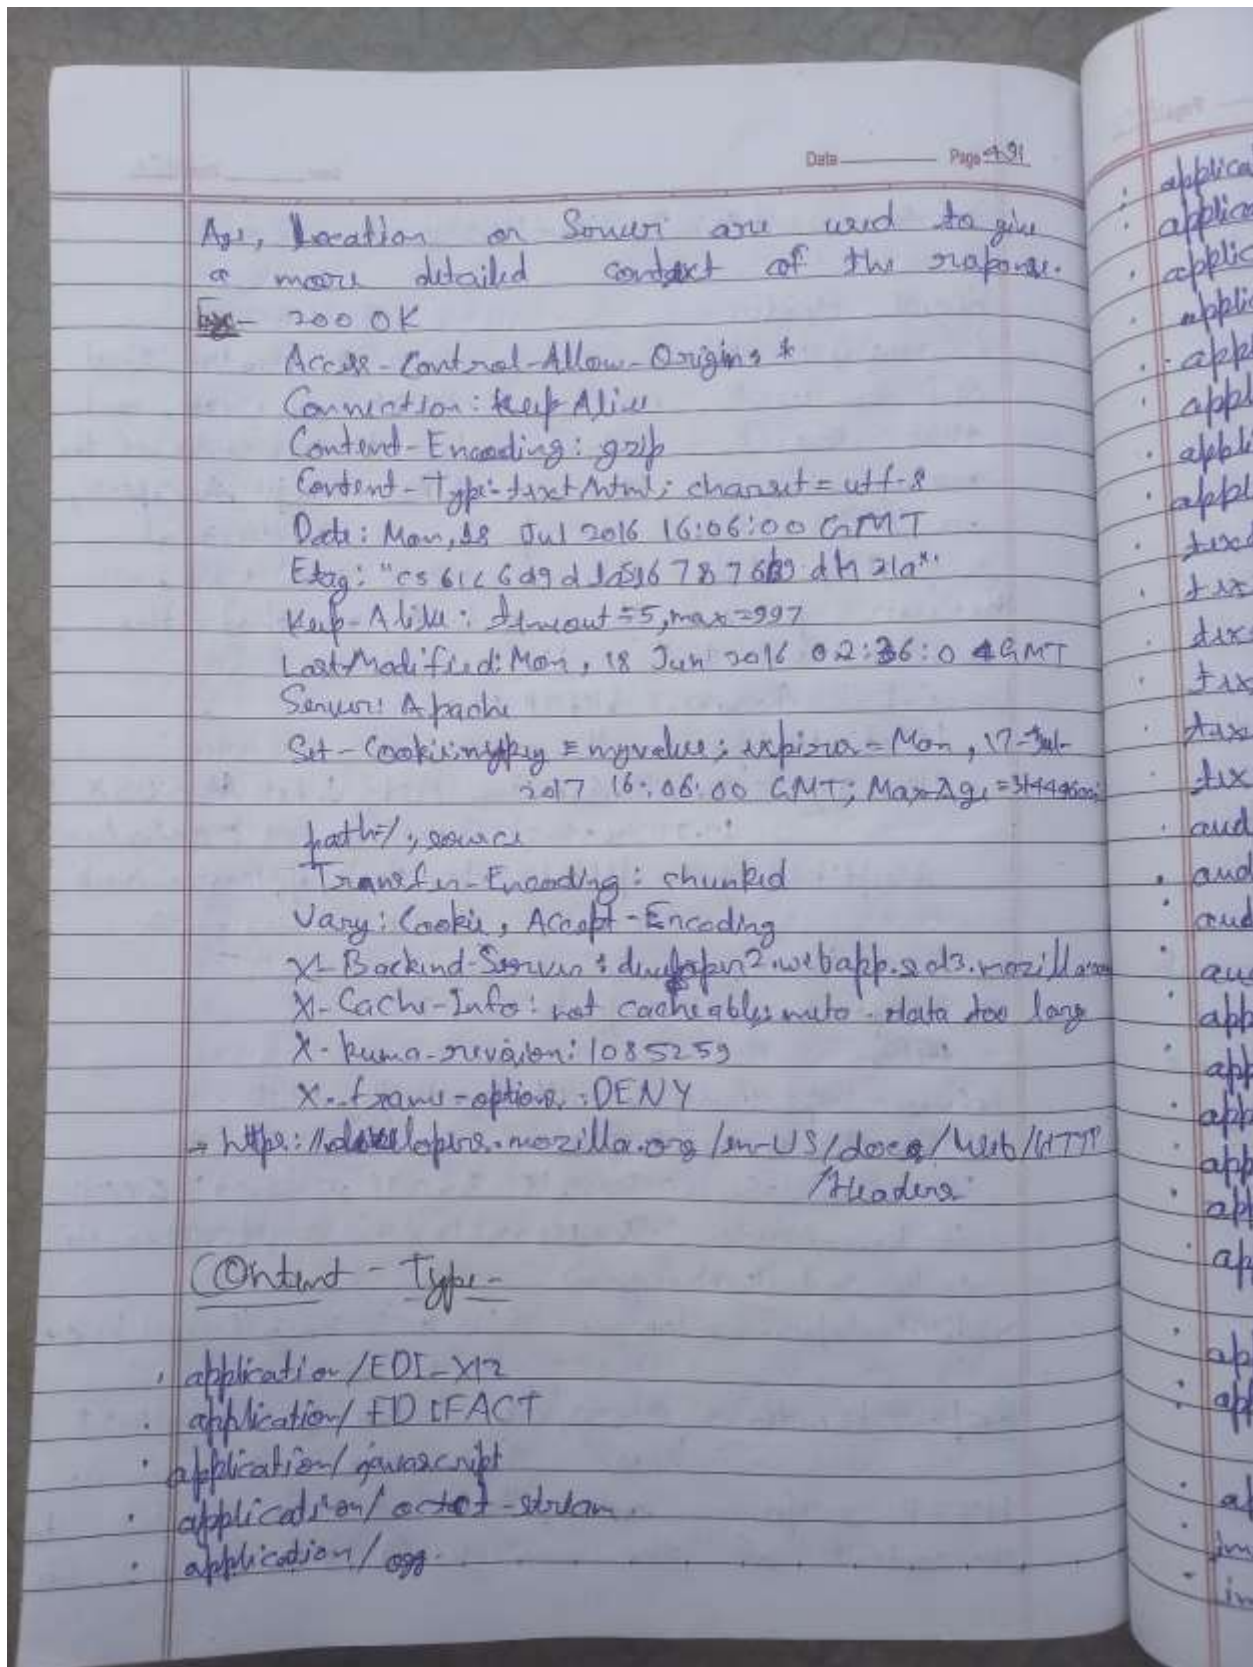 Date Page 431
Age, Location or Server are used to give
a more detailed context of the response.
Ex- 200 OK
Access-Control-Allow-Origin: *
Connection: Keep Alive
Content-Encoding: gzip
Content-Type: text/html; charset=utf-8
Date: Mon, 18 Jul 2016 16:06:00 GMT
Etag:
Keep-Alive: timeout=5, max=997
Last Modified: Mon, 18 Jun 2016 02:36:04 GMT
Server: Apache
Set-Cookie: mykey = myvalue; expires = Mon, 17-Jul-
2017 16:06:00 GMT; Max-Age = 31449600;
path=/;
Transfer-Encoding: chunked
Vary: Cookie, Accept-Encoding
X-Backend-Server: developer2.webapp.scl3.mozilla.com
X-Cache-Info: not cacheable; data too long
X-kuma-revision: 1085259
X-frame-options: DENY
→ https://developers.mozilla.org/en-US/docs/Web/HTTP
/Headers
Content-Type-
• application/EDI-X12
• application/EDIFACT
• application/javascript
• application/octet-stream.
• application/ogg.
applica
applica
applic
appli
appl
appl
appli
appl
tex
tex
tex
tex
tex
aud
aud
aud
au
app
app
app
app
ap
ap
ap
ap
im